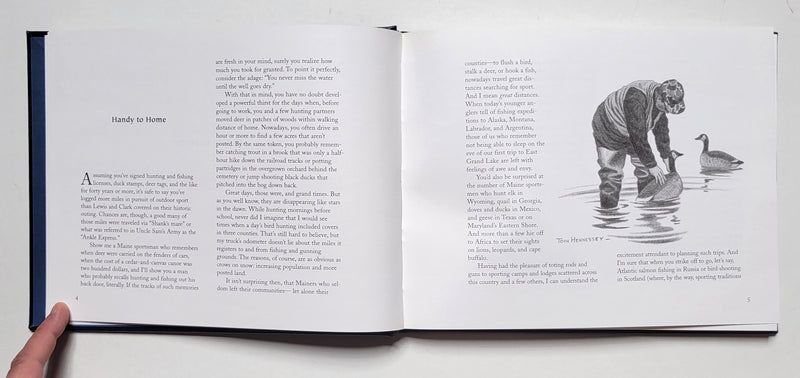 Handy to Home
Assuming you've signed hunting and fishing
licenses, duck stamps, deer tags, and the like
for forty years or more, it's safe to say you've
logged more miles in pursuit of outdoor sport
than Lewis and Clark covered on their historic
outing. Chances are, though, a good many of
those miles were traveled via "Shank's mare" or
what was referred to in Uncle Sam's Army as the
"Ankle Express."
Show me a Maine sportsman who remembers
when deer were carried on the fenders of cars,
when the cost of a cedar-and-canvas canoe was
two hundred dollars, and I'll show you a man
who probably recalls hunting and fishing out his
back door, literally. If the tracks of such memories
4
are fresh in your mind, surely you realize how
much you took for granted. To point it perfectly,
consider the adage: "You never miss the water
until the well goes dry."
With that in mind, you have no doubt devel-
oped a powerful thirst for the days when, before
going to work, you and a few hunting partners
moved deer in patches of woods within walking
distance of home. Nowadays, you often drive an
hour or more to find a few acres that aren't
posted. By the same token, you probably remem-
ber catching trout in a brook that was only a half-
hour hike down the railroad tracks or potting
partridges in the overgrown orchard behind the
cemetery or jump shooting black ducks that
pitched into the bog down back.
Great days, those were, and grand times. But
as you well know, they are disappearing like stars
in the dawn. While hunting mornings before
school, never did I imagine that I would see
times when a day's bird hunting included covers
in three counties. That's still hard to believe, but
my truck's odometer doesn't lie about the miles it
registers to and from fishing and gunning
grounds. The reasons, of course, are as obvious as
crows on snow: increasing population and more
posted land.
It isn't surprising then, that Mainers who sel-
dom left their communities— let alone their
counties—to flush a bird,
stalk a deer, or hook a fish,
nowadays travel great dis-
tances searching for sport.
And I mean great distances.
When today's younger an-
glers tell of fishing expedi-
tions to Alaska, Montana,
Labrador, and Argentina,
those of us who remember
not being able to sleep on the
eve of our first trip to East
Grand Lake are left with
feelings of awe and envy.
You'd also be surprised at
the number of Maine sports-
men who hunt elk in
Wyoming, quail in Georgia,
doves and ducks in Mexico,
and geese in Texas or on
Maryland's Eastern Shore.
And more than a few hie off
to Africa to set their sights
on lions, leopards, and cape
buffalo.
Having had the pleasure of toting rods and
guns to sporting camps and lodges scattered across
this country and a few others, I can understand the
TOM HENNESSEY
excitement attendant to planning such trips. And
I'm sure that when you strike off to go, let's say,
Atlantic salmon fishing in Russia or bird shooting
in Scotland (where, by the way, sporting traditions
5